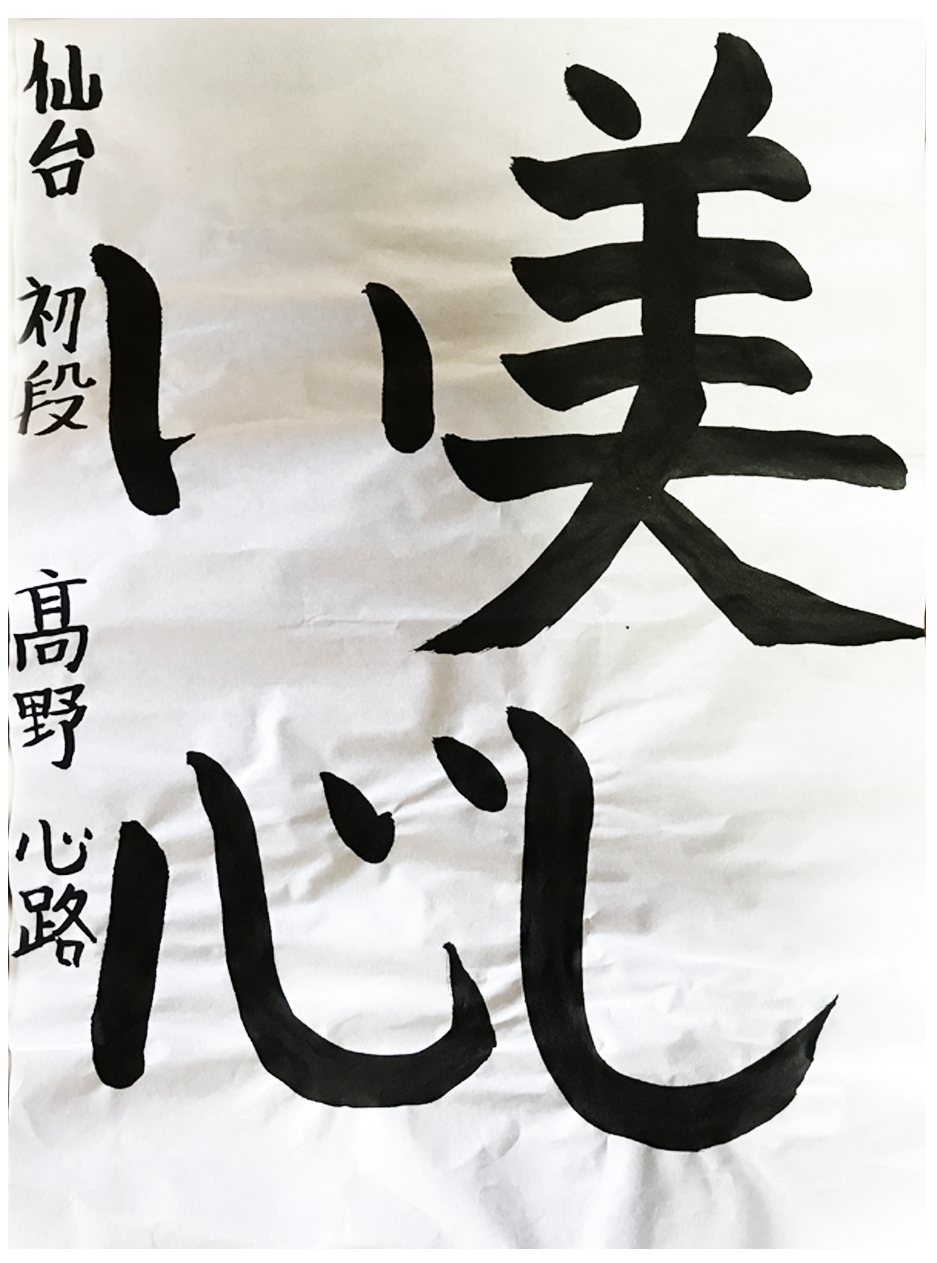 美し
い心
仙台 初段 髙野 心路